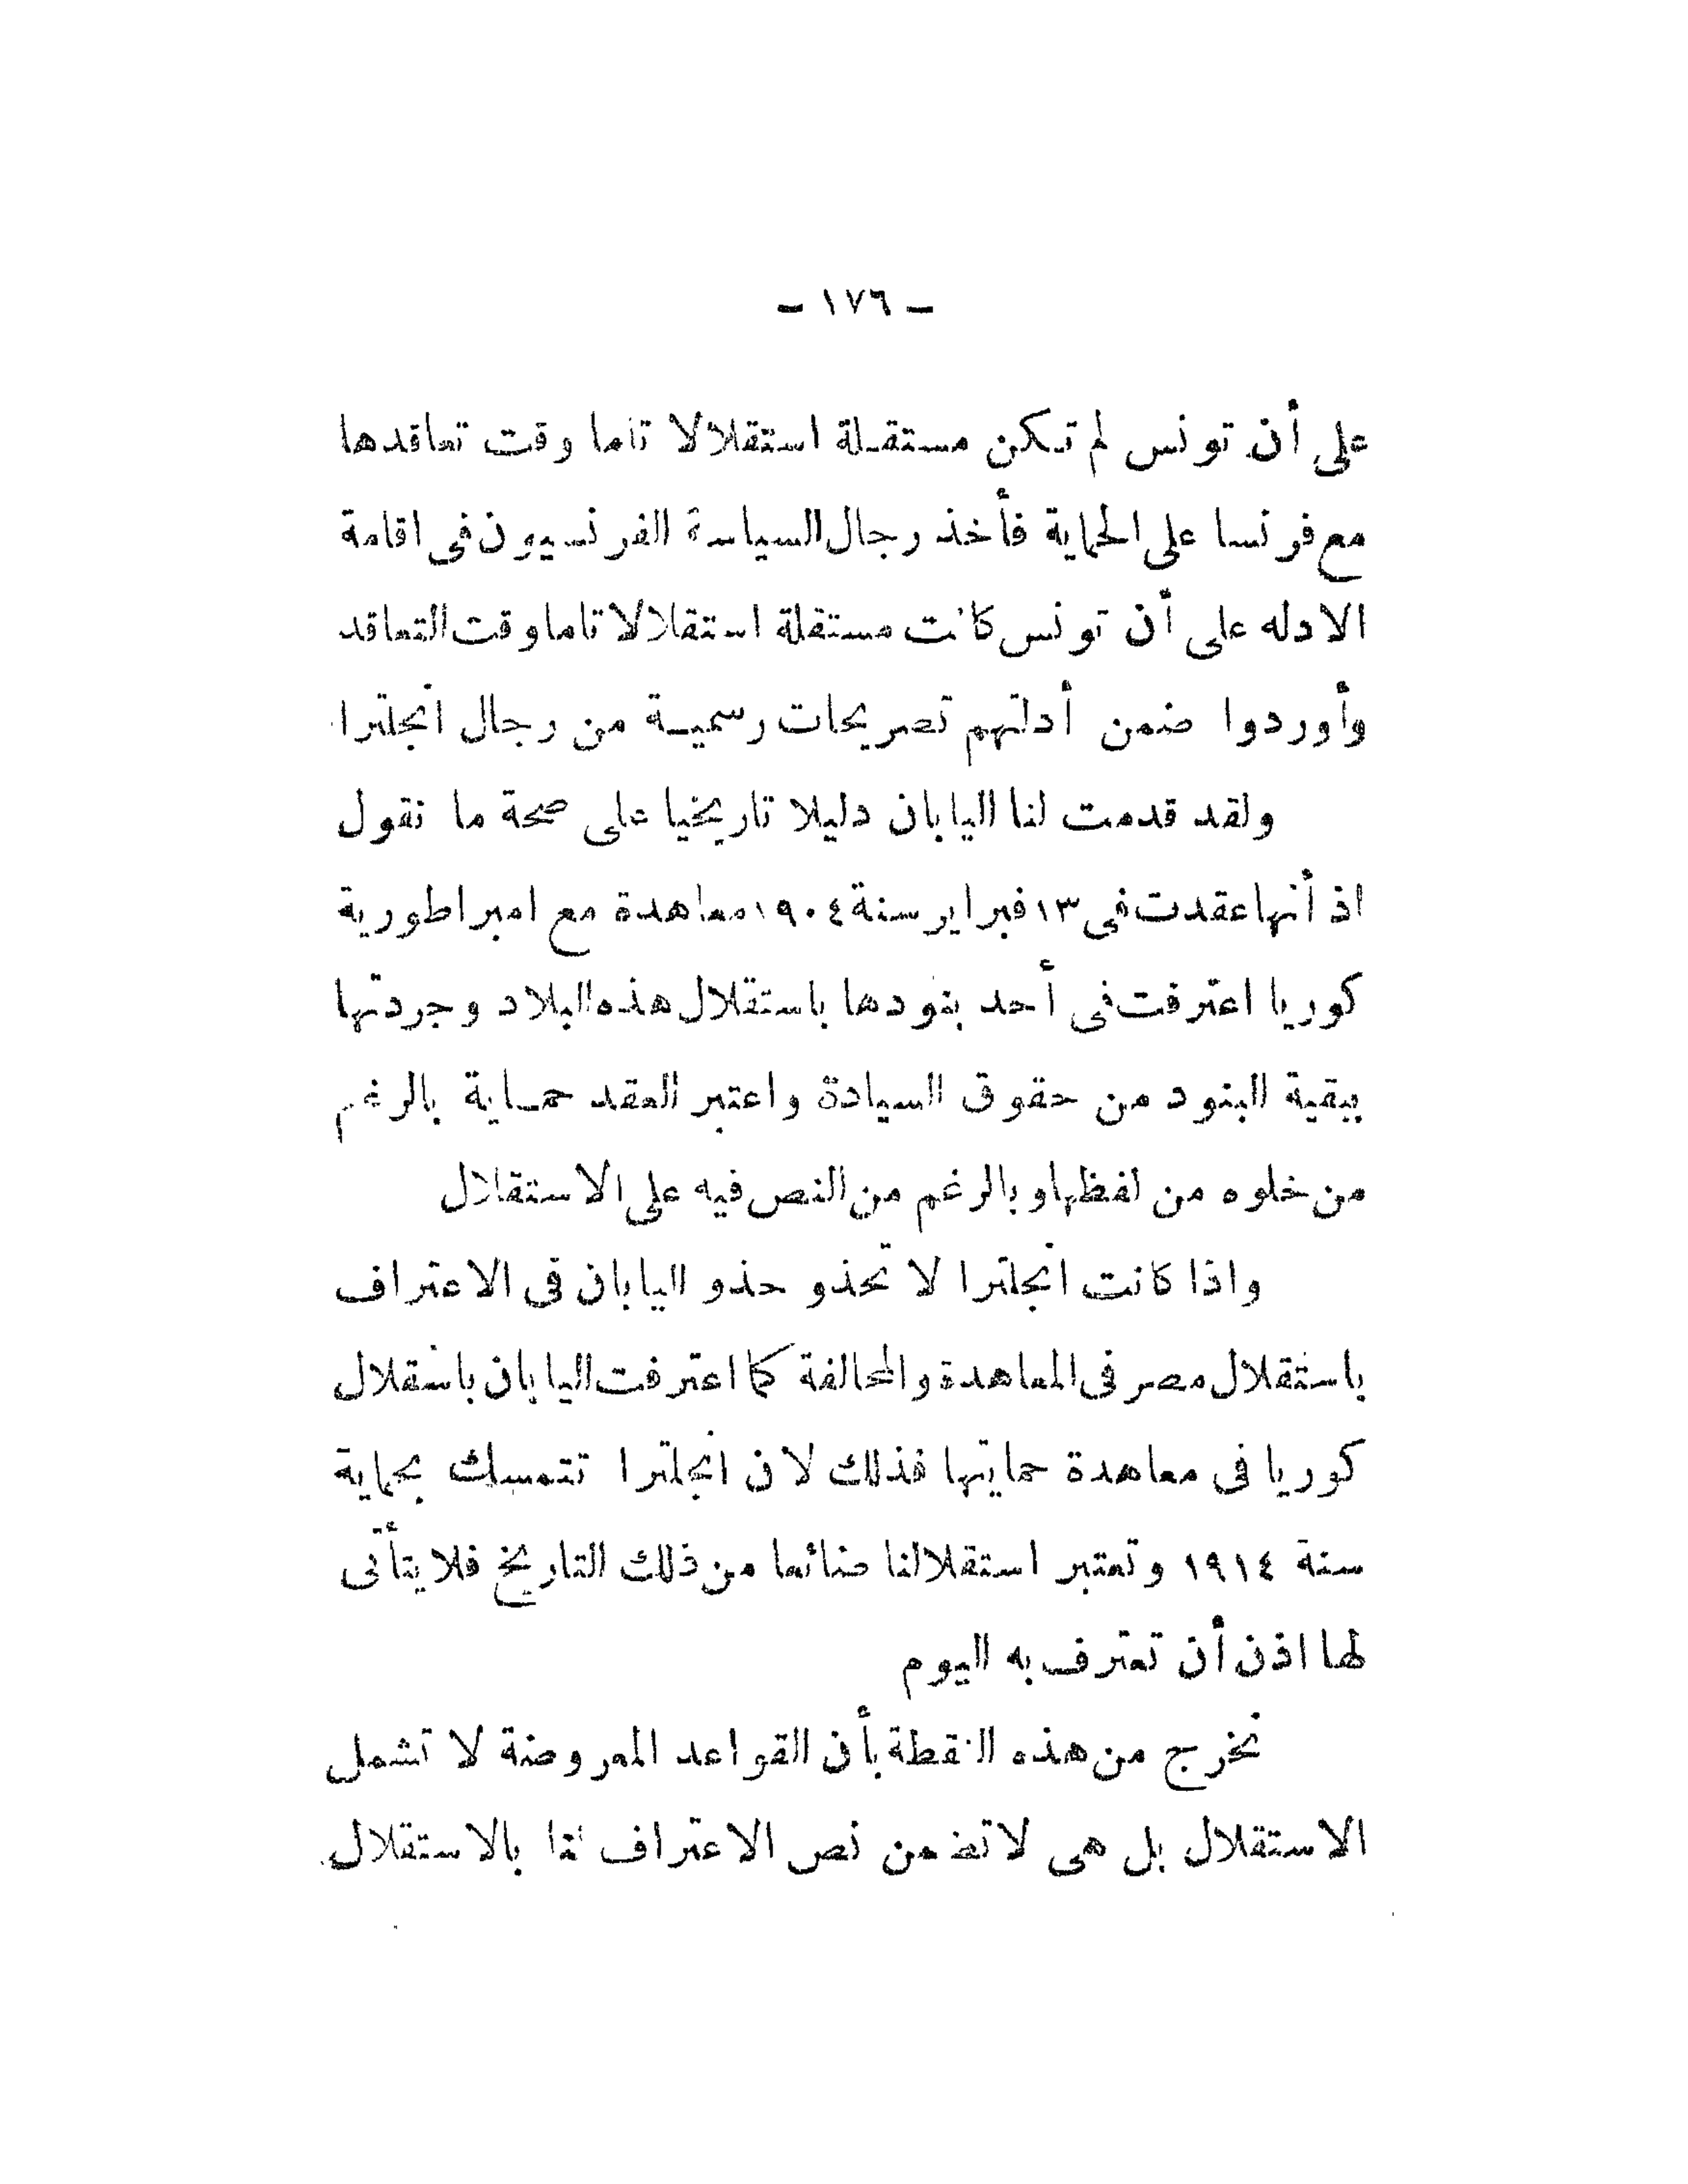 — ١٧٦ —
على أن تونس لم تكن مستقلة استقلالا تاما وقت تعاقدها
مع فرنسا على الحماية فأخذ رجال السياسة الفرنسيون فى اقامة
الادله على أن تونس كانت مستقلة استقلالا تاما وقت التعاقد
وأوردوا ضمن أدلتهم تصريحات رسمية من رجال انجلترا
ولقد قدمت لنا اليابان دليلا تاريخيا على صحة ما نقول
اذ أنها عقدت فى ١٣ فبراير سنة ١٩٠٤ معاهدة مع امبراطورية
كوريا اعترفت فى أحد بنودها باستقلال هذه البلاد وجردتها
ببقية البنود من حقوق السيادة واعتبر العقد حماية بالرغم
من خلوه من لفظها وبالرغم من النص فيه على الاستقلال
واذا كانت انجلترا لا تحذو حذو اليابان فى الاعتراف
باستقلال مصر فى المعاهدة والمحالفة كما اعترفت اليابان باستقلال
كوريا فى معاهدة حمايتها فذلك لان انجلترا تتمسك بحماية
سنة ١٩١٤ وتعتبر استقلالنا ضائعا من ذلك التاريخ فلا يتأتى
لها اذن أن تعترف به اليوم
نخرج من هذه النقطة بأن القواعد المعروضة لا تشمل
الاستقلال بل هى لا تضمن نص الاعتراف لنا بالاستقلال